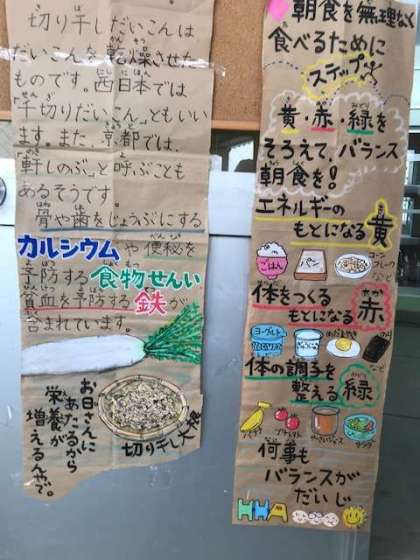 切り干しだいこんは
だいこんを乾燥させた
ものです。西日本では
「千切りだいこん」ともいい
ます。また、京都では、
「軒しのぶ」と呼ぶことも
あるそうです。
骨や歯をじょうぶにする
カルシウムや便秘を
予防する食物せんい
貧血を予防する鉄が
含まれています。
お日さんに
あたるから
栄養が
増えるんやで。
切り干し大根
朝食を無理なく
食べるために
ステップ
黄・赤・緑を
そろえて、バランス
朝食を!
エネルギーの
もとになる黄
ごはん
パン
コーン
フレーク
など
体をつくる
もとになる赤
ヨーグルト
めだまやき
のり
など
体の調子を
整える緑
バナナ
プチトマト
やさいジュース
サラダ
何事も
バランスが
だいじ